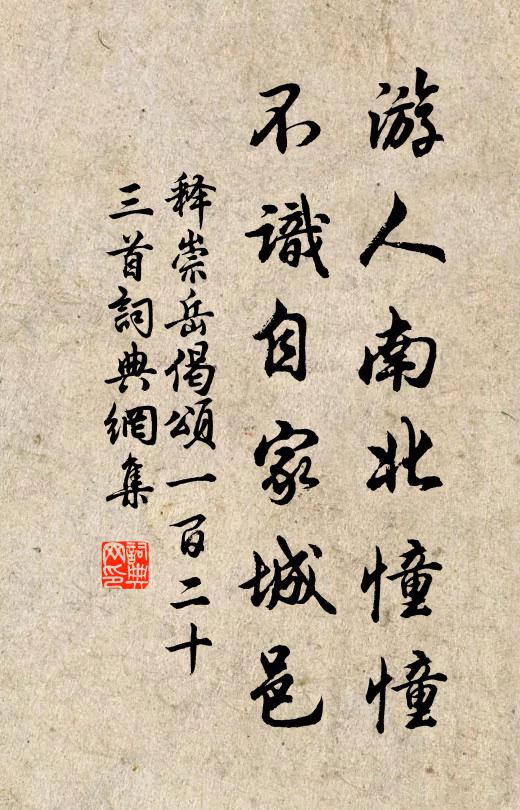 游人南北憧憧
不識自家城邑
释崇岳偈頌一百二十
三首詞典網集
詞典
网印